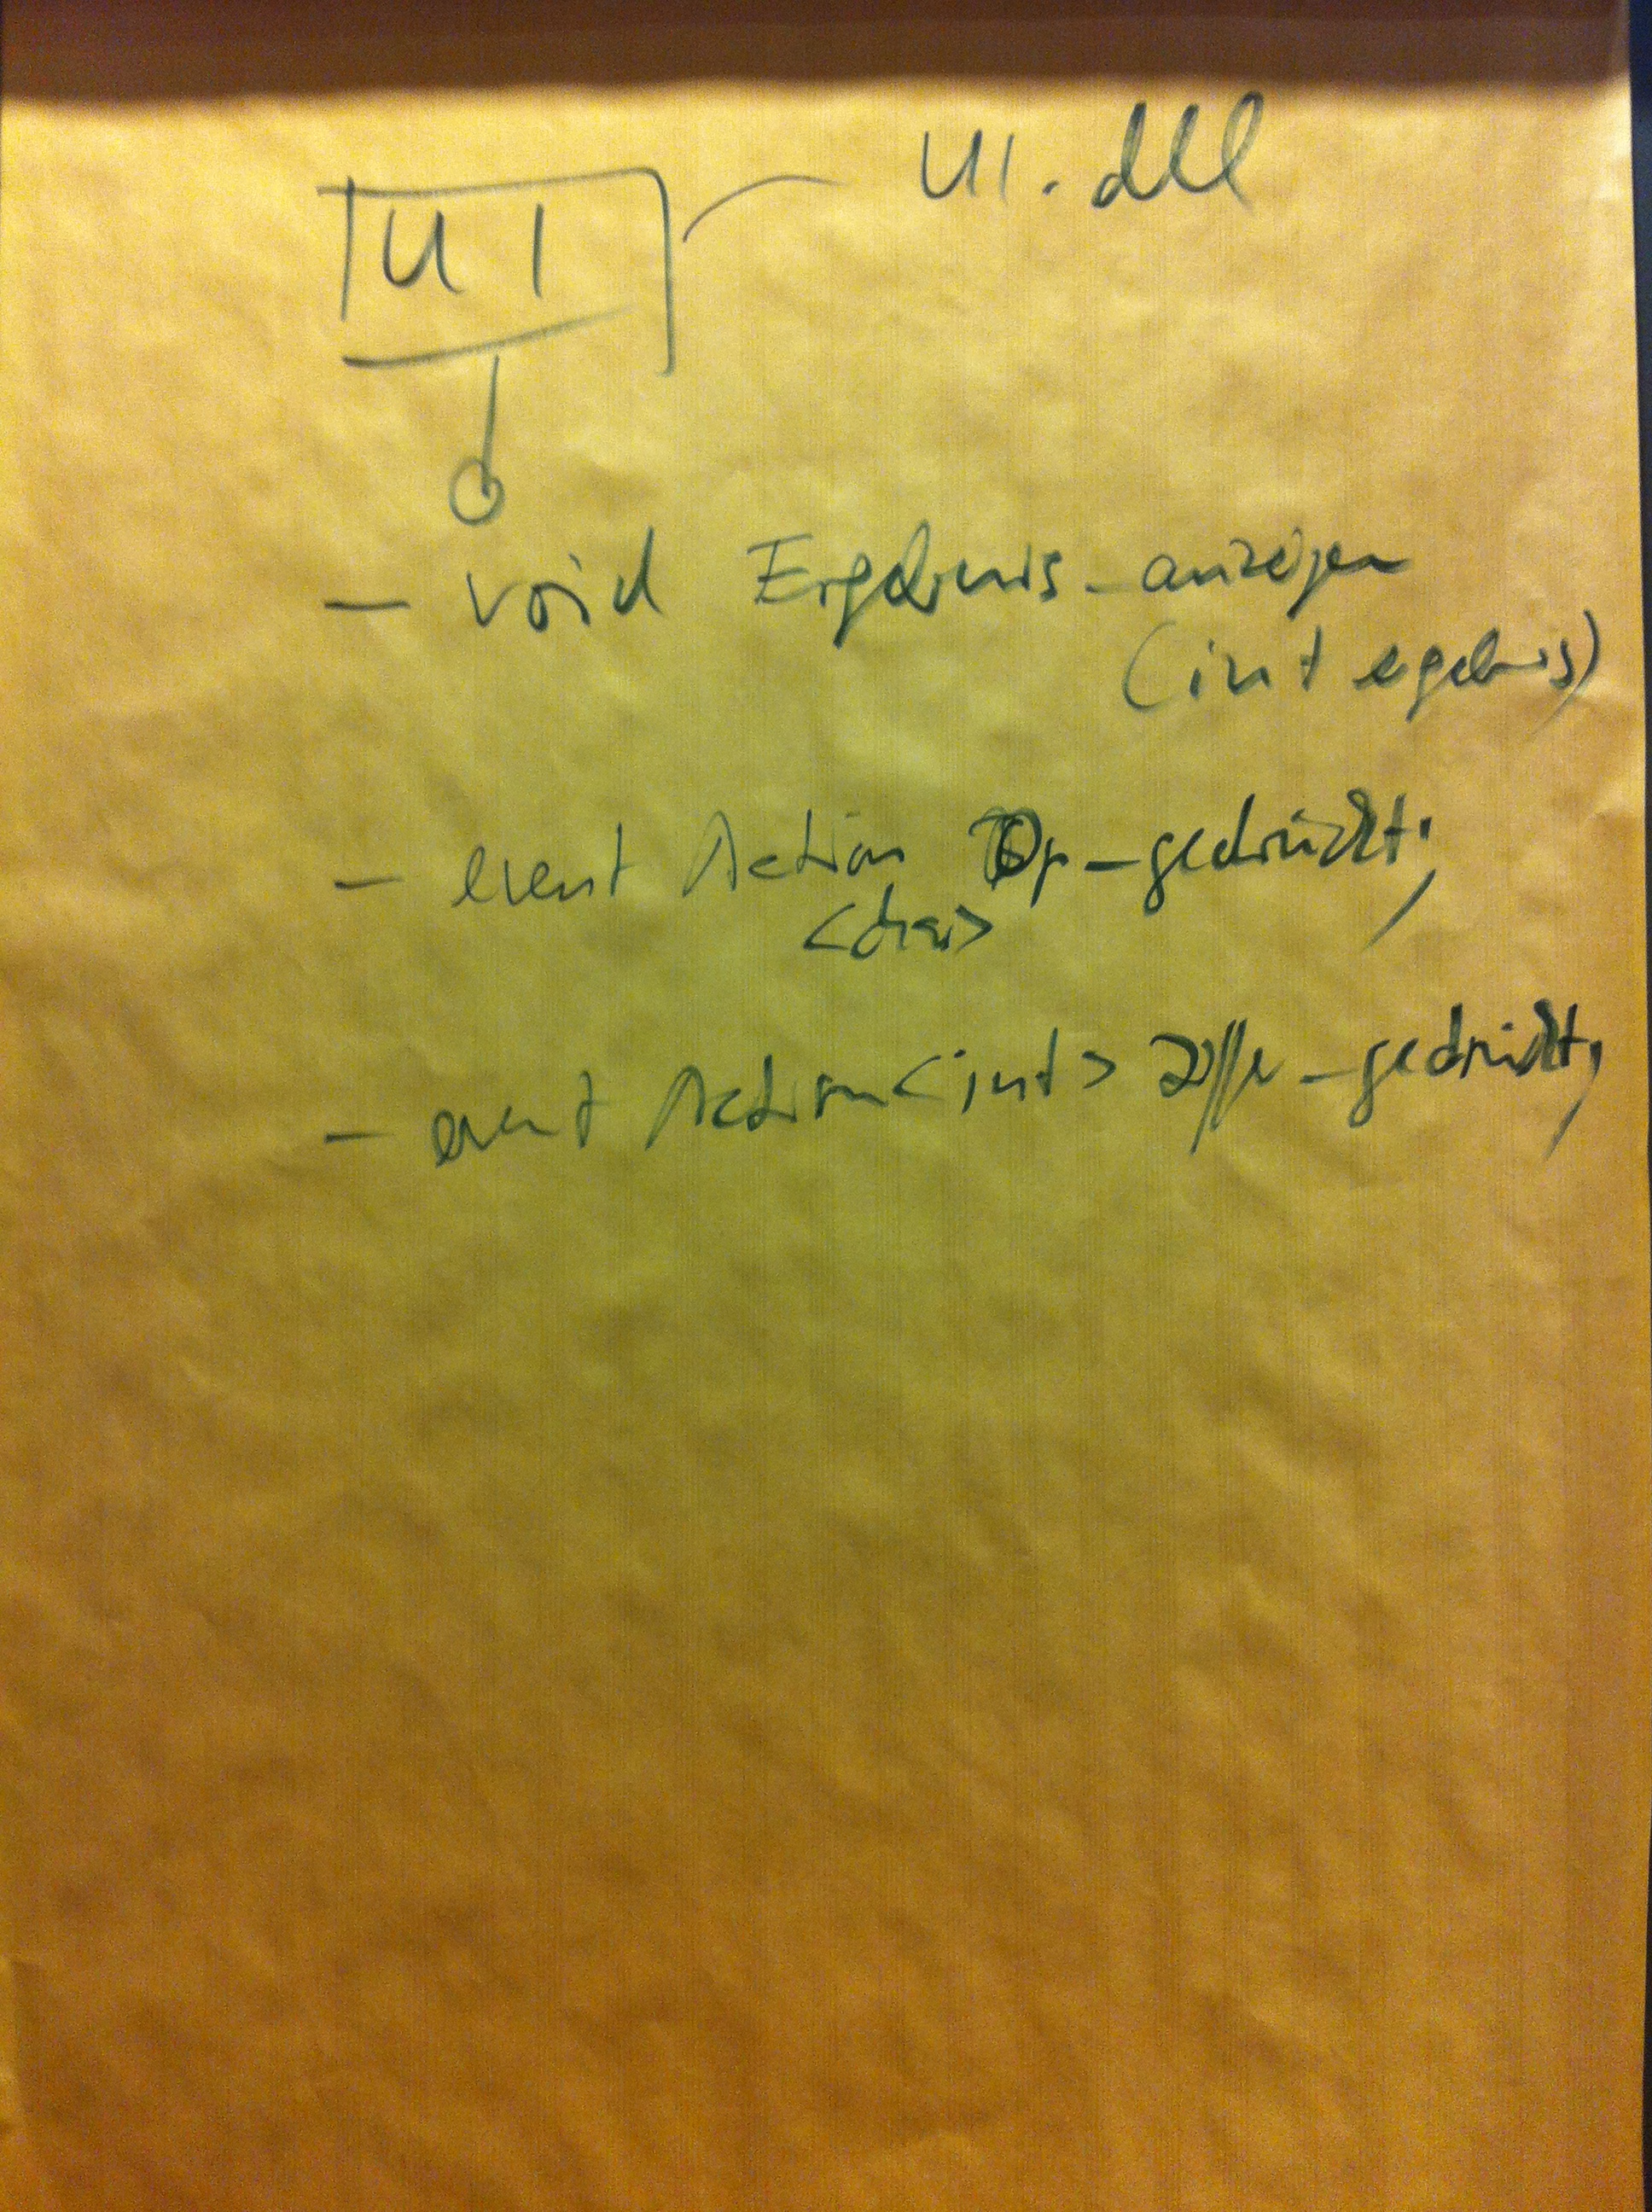 UI
UI.dll
- void Ergebnis_anzeigen
(int ergebnis)
- event Action Op_gedrückt;
<char>
- event Action<int> Ziffer_gedrückt;